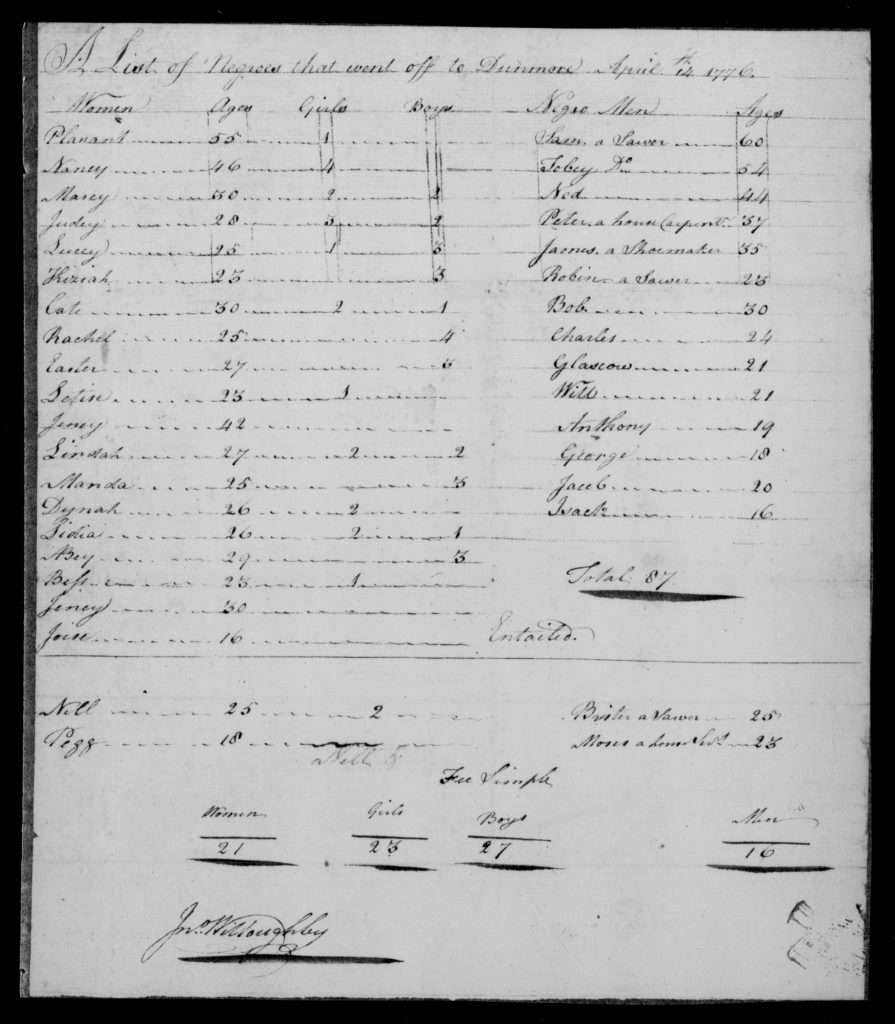 A List of Negroes that went off to Dunmore April 14th 1776
Women Ages Girls Boys Negro Men Ages
Plasant 55 1 Sam, a Sawer 60
Nancy 46 4 Tobey Do 54
Marey 30 2 2 Ned 44
Judey 28 3 2 Peter, a house Carpentr 37
Lucey 25 1 3 James, a Shoemaker 35
Kiziah 23 3 Robin a Sawer 23
Cate 30 2 1 Bob 30
Rachel 25 4 Charles 24
Easter 27 3 Glascow 21
23 1 Will 21
Jeney 42 Anthony 19
Lindah 27 2 2 George 18
Manda 25 3 Jacob 20
Dynah 26 2 Isack 16
Lidia 26 2 1
Abey 29 3
Bess 23 1 Total 87
Jeney 30
16 Entailed.
Nell 25 2 Brister a Sawer 25
Pegg 18 Moses a house 23
Nell
Fee Simple
Women Girls Boys Men
21 23 27 16
Jno. Willoughby